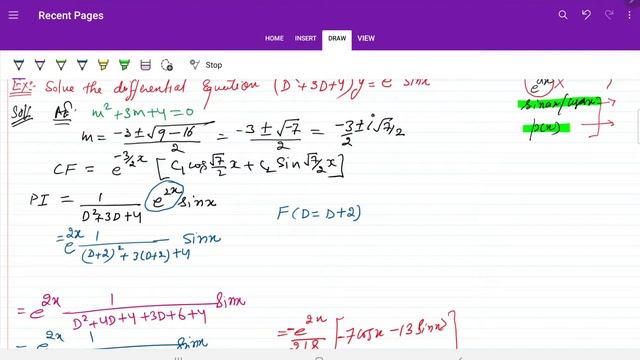 Recent Pages
HOME INSERT DRAW VIEW
Stop
Ex:- Solve the differential Equation (D²+3D+4)y = e sinx
Solⁿ: AE: m²+3m+4=0
m = -3±√9-16/2 = -3±√-7/2 = -3/2 ± i√7/2
CF = e^-3/2x [C₁ cos √7/2 x + C₂ Sin √7/2 x]
PI = 1/D²+3D+4 e^2x sinx
F(D=D+2)
= e^2x 1/(D+2)²+3(D+2)+4 sinx
= e^2x 1/D²+4D+4+3D+6+4 sinx
= -e^2x/218 [-7cosx-13 sinx]
e^ax X
sinax/cosax
p(x)